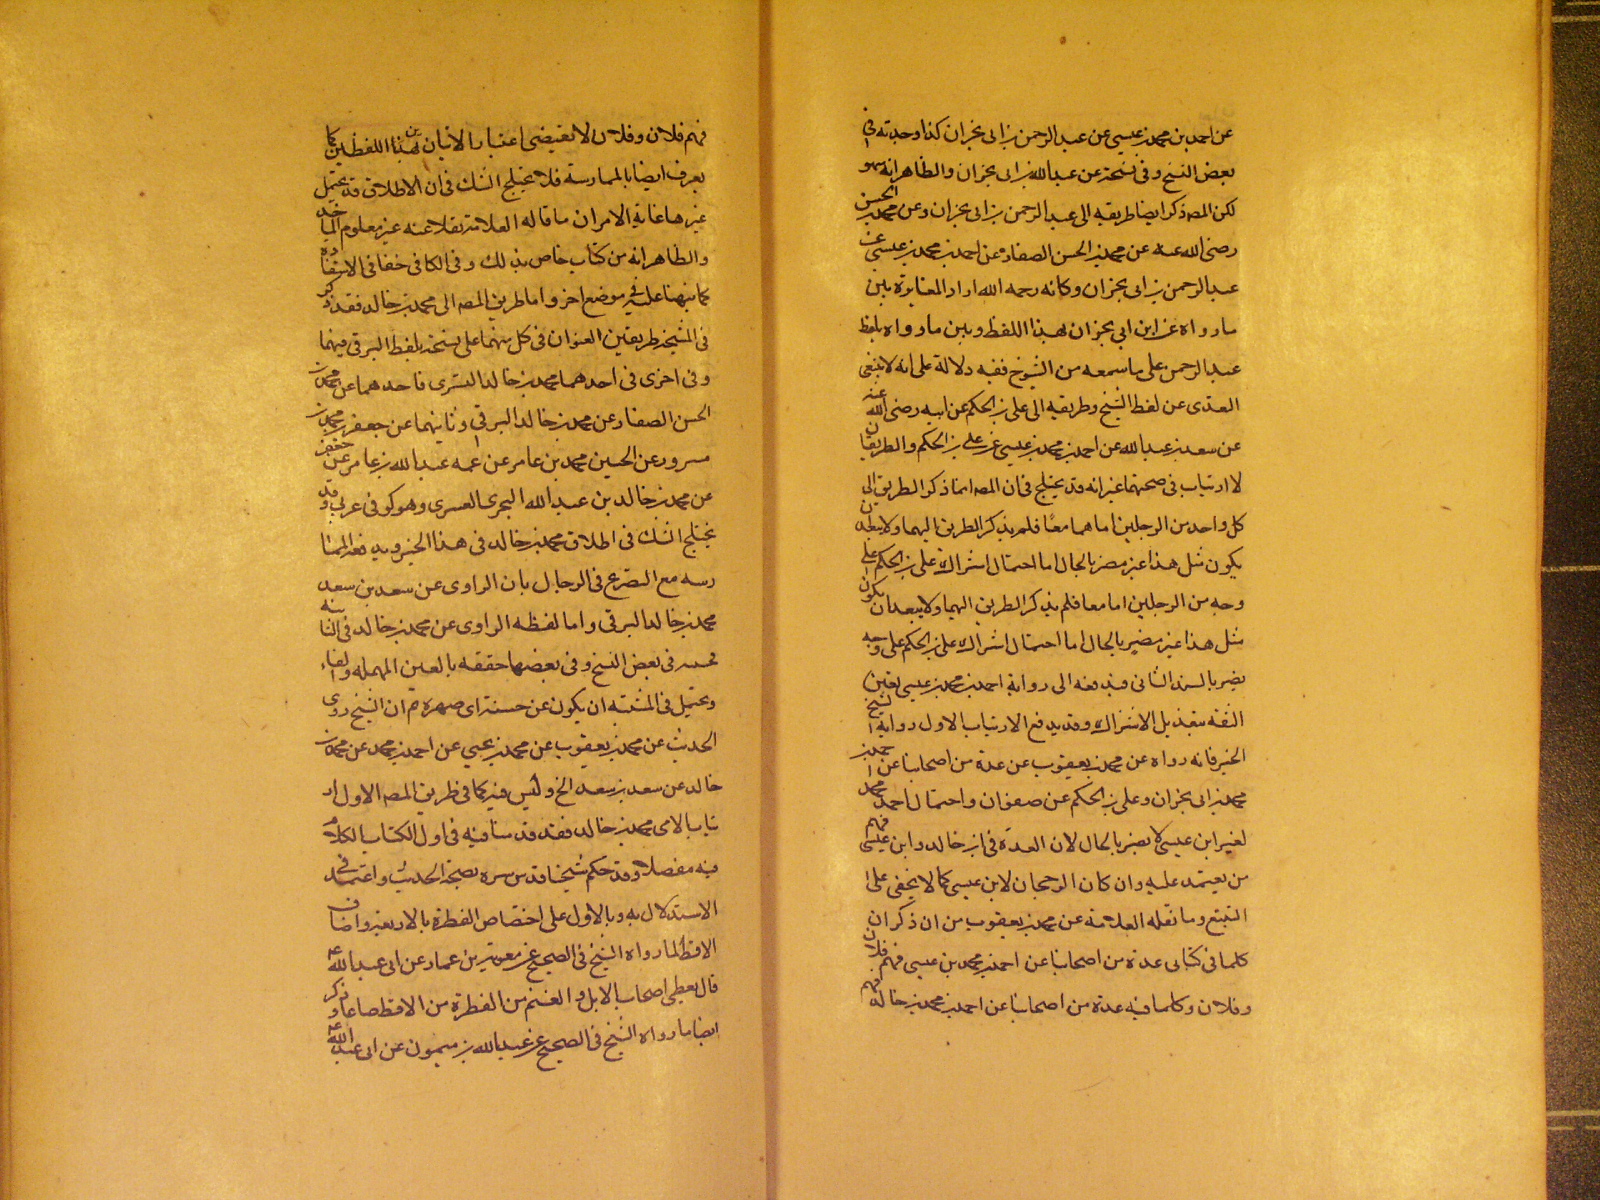 عن احمد بن محمد بن عيسى عن عبد الرحمن بن ابى نجران كذا وجدته في
بعض النسخ وفى نسخة عن عبد الله بن ابى نجران والظاهر انه سهو
لكن المص ذكر ايضا طريقه الى عبد الرحمن بن ابى نجران وعن محمد بن الحسن
رضى الله عنه عن محمد بن الحسن الصفار عن احمد بن محمد بن عيسى عن
عبد الرحمن بن ابى نجران وكانه رحمه الله اراد المغايرة بين
ما رواه عن ابن ابي نجران بهذا اللفظ وبين ما رواه بلفظ
عبد الرحمن على ما سمعه من الشيوخ ففيه دلالة على انه لا ينبغى
التعدى عن لفظ الشيخ وطريقه الى على بن الحكم عن ابيه رضى الله عنه
عن سعد بن عبد الله عن احمد بن محمد بن عيسى عن على بن الحكم والطريقان
لا ارتياب فى صحتهما غير انه قد يختلج فى ان المص انما ذكر الطريق الى
كل واحد من الرجلين اما هما معًا فلم يذكر الطريق اليهما ولا يبعد ان
يكون مثل هذا غير مضر بالحال اما احتمال اشتراك على بن الحكم على
وجه من الرجلين اما معا فلم يذكر الطريق اليهما ولا يبعد ان يكون
مثل هذا غير مضر بالحال اما احتمال اشتراك على بن الحكم على وجه
يضر بالسند الثانى فيدفعه الى رواية احمد بن محمد بن عيسى يعين
الثقة بتقدير الاشتراك وقد يدفع الارتياب الاول رواية الشيخ
الخبر فانه رواه عن محمد بن يعقوب عن عدة من اصحابنا عن احمد بن
محمد بن ابى نجران وعلى بن الحكم عن صفوان واحتمال احمد بن محمد
لغير ابن عيسى لا يضر بالحال لان العدة فى ابن خالد وابن عيسى فيهم
من يعتمد عليه وان كان الرجحان لابن عيسى كما لا يخفى على
التتبع وما نقله العلامة عن محمد بن يعقوب من ان ذكر ان
كلما فى كتابى عدة من اصحابنا عن احمد بن محمد بن عيسى فهم فلان
وفلان وكلما فيه عدة من اصحابنا عن احمد بن محمد بن خالد
فهم فلان وفلان لا يقتضى اعتبار الاتيان بهذا اللفظين كما
يعرف ايضا بالممارسة فلا يختلج الشك فى ان الاطلاق قد يحتمل
غيرها غاية الامر ان ما قاله العلامة نقلا عنه غير معلوم الماخذ
والظاهر انه من كتاب خاص بذلك وفى الكافى خفا فى الاستفادة
كما نبهنا عليه فى موضع اخر واما طريق المص الى محمد بن خالد فقد ذكر
فى المشيخة طريقين العنوان فى كل منهما على نسخة بلفظ البرقى فيهما
وفى اخرى فى احدهما محمد بن خالد القسرى فاحدهما عن محمد بن
الحسن الصفار عن محمد بن خالد البرقى وثانيهما عن جعفر بن محمد بن
مسرور عن الحسين محمد بن عامر عن عمه عبد الله بن عامر عن
عن محمد بن خالد بن عبد الله البجرى القسرى وهو كوفى عربى وقد
يختلج الشك فى اطلاق محمد بن خالد فى هذا الخبر ويدفعه المما
رسه مع التصريح فى الرجال بان الراوى عن سعد بن سعد
محمد بن خالد البرقى واما لفظه الراوى عن محمد بن خالد فى الثانية
فى بعض النسخ وفى بعضها حققه بالعين المهمله والفاء
ويحتمل فى المشتبه ان يكون عن حسنة اى صهره ثم ان الشيخ روى
الحديث عن محمد بن يعقوب عن محمد بن يحيى عن احمد بن محمد عن محمد بن
خالد عن سعد بن سعد الخ وليس فيه كما فى طريق المص الاول
محمد بن خالد فقد قدمنا فيه فى اول الكتاب الكلام
فيه مفصلا وقد حكم شيخنا قدس سره بصحة الحديث واعتمد فى
الاستدلال به وبالاول على اختصاص الفطرة بالاربعة واضاف
الاقط لما رواه الشيخ فى الصحيح عن معوية بن عمار عن ابى عبد الله ع
قال يعطى اصحاب الابل والغنم من الفطرة من الاقط صاعا وذكر
ايضا ما رواه الشيخ فى الصحيح عن عبد الله بن ميمون عن ابى عبد الله ع